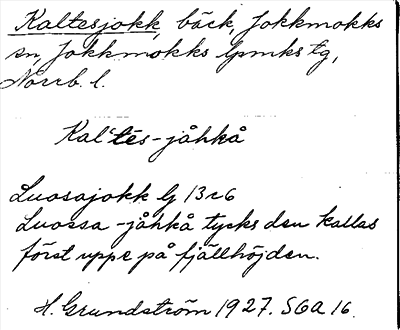 Kaltesjokk, bäck, Jokkmokks
sn, Jokkmokks lpmks tg,
Norrb. l.
Kal'tēs-jåhkå
Luosajokk lj 13c6
Luossa-jåhkå tycks den kallas
först uppe på fjällhöjden.
H. Grundström 1927. SGA 16.